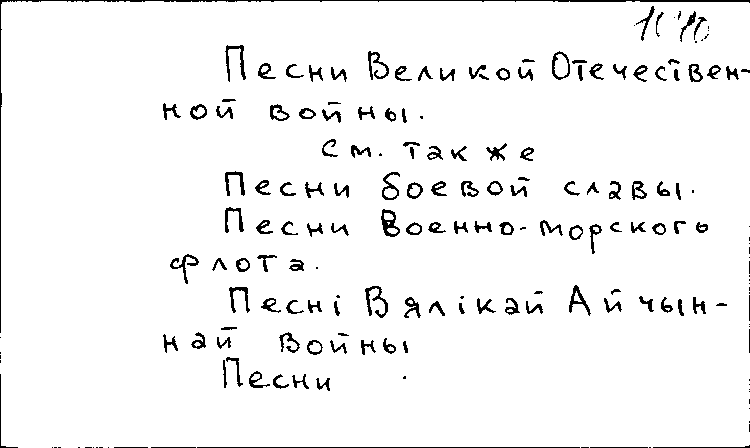 Песни Великой Отечествен-
ной войны.
см. также
Песни боевой славы.
Песни Военно-морского
флота.
Песні Вялікай Айчын-
най войны
Песни